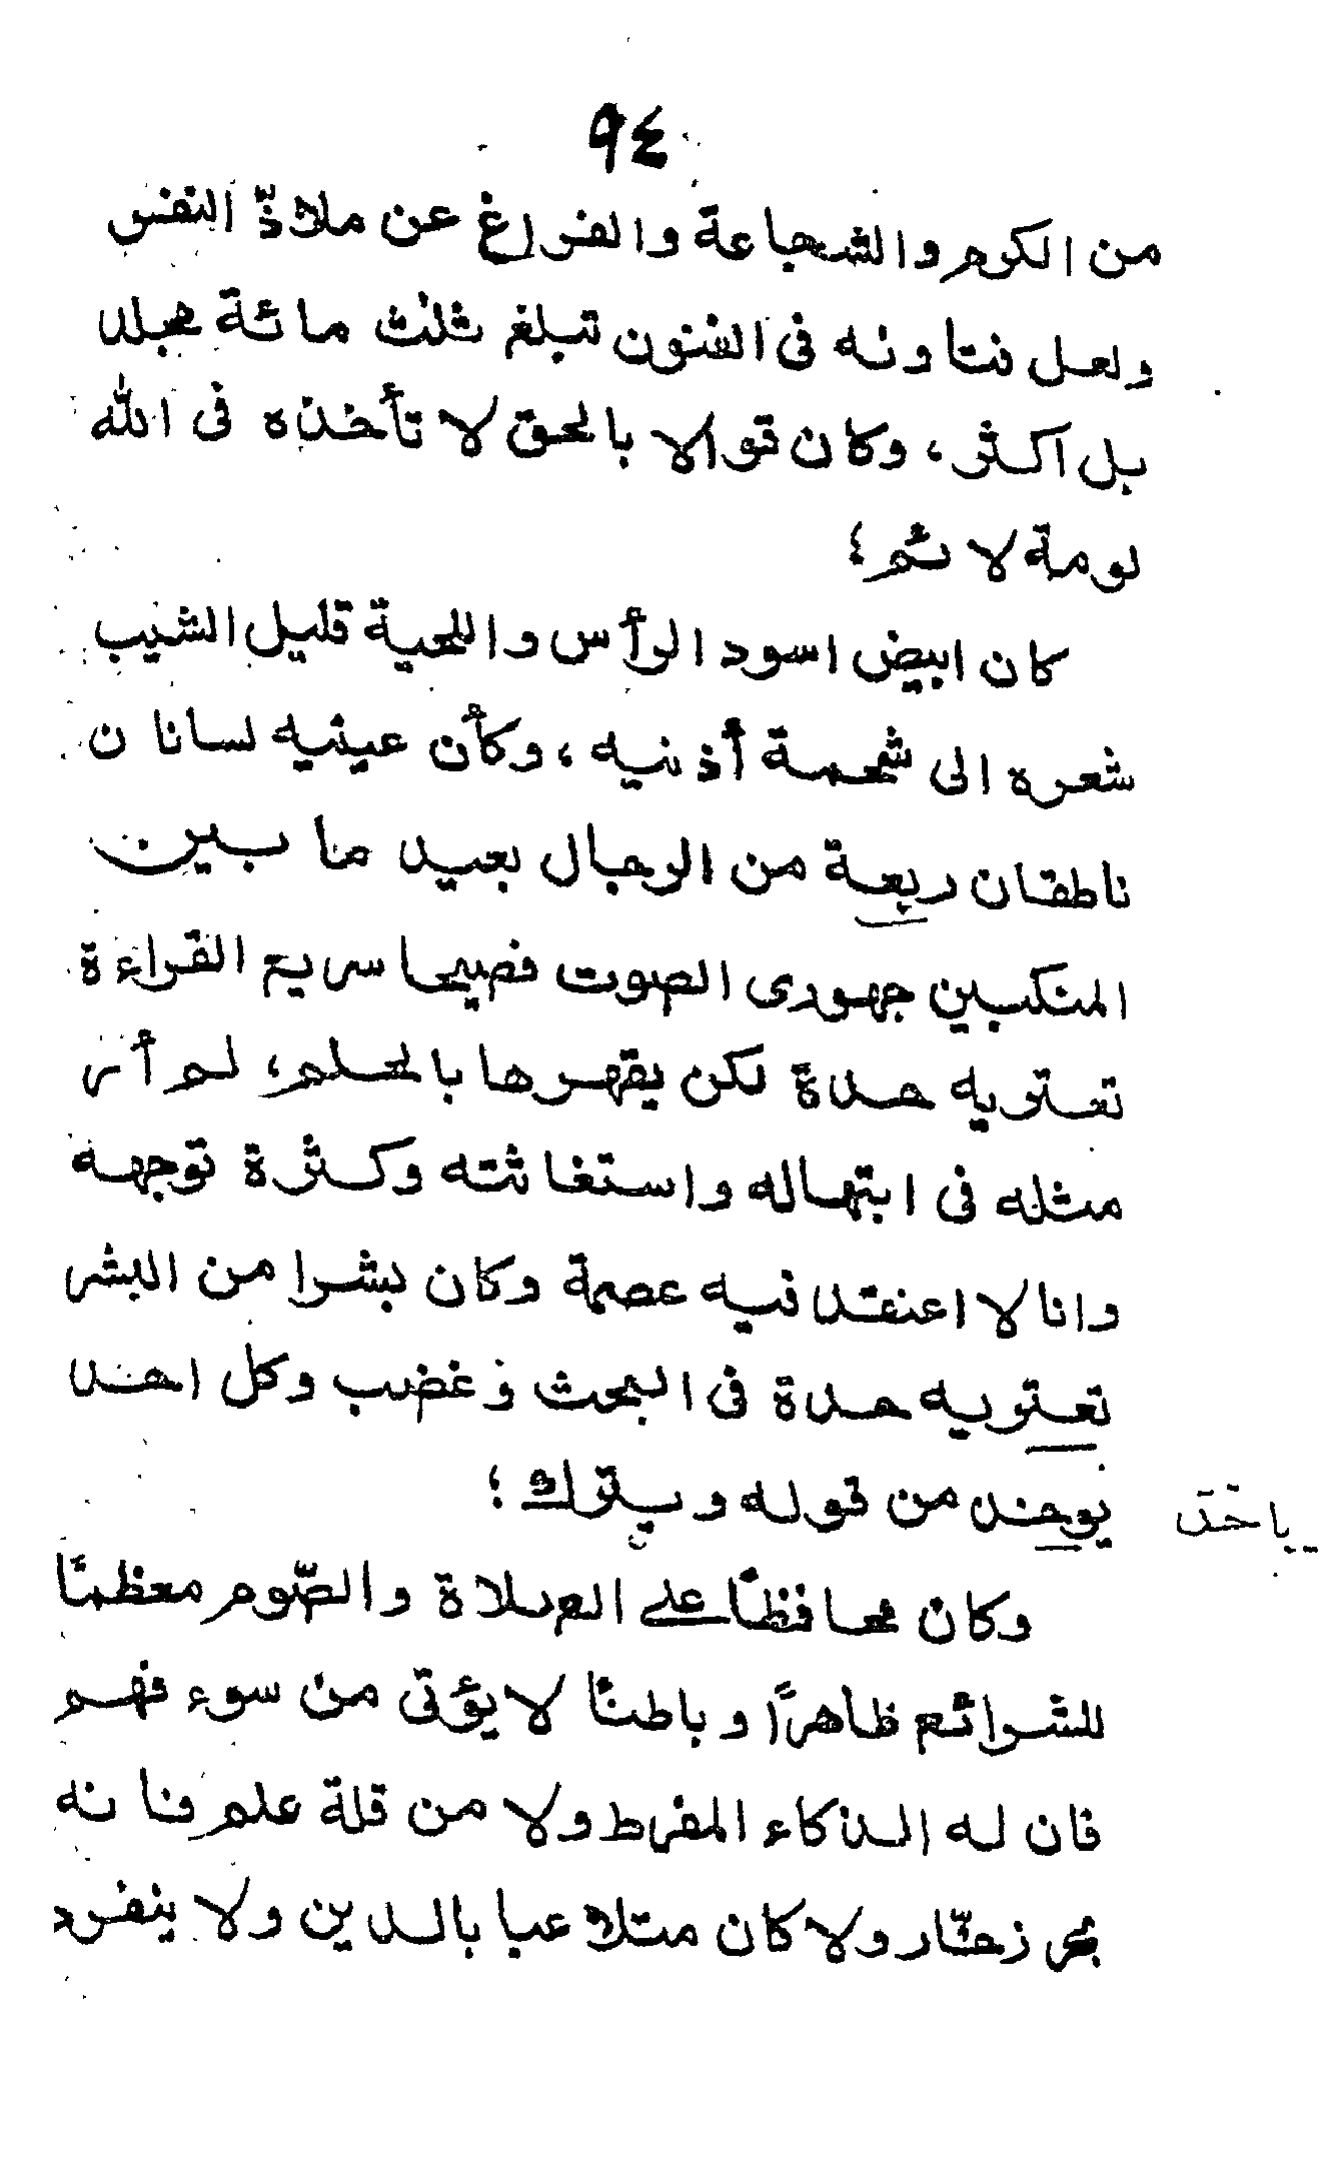 ٩٤
من الكرم والشجاعة والفراغ عن ملاذّ النفس
ولعل فتاونه فى الفنون تبلغ ثلث مائة مجلد
بل اكثر، وكان قوالا بالحق لا تأخذه فى الله
لومة لا ئم؛
كان ابيض اسود الرأس واللحية قليل الشيب
شعره الى شحمة أذنيه، وكأن عينيه لسانا ن
ناطقان ربعة من الرجال بعيد ما بين
المنكبين جهورى الصوت فصيحا سريع القراءة
تعتريه حدة لكن يقهرها بالحلم، لم أر
مثله فى ابتهاله واستغاثته وكثرة توجهه
وانا لا اعنقد فيه عصمة وكان بشرا من البشر
تعتريه حدة فى البحث و غضب وكل احد
يوخذ من قوله و يترك؛
ياخذ
وكان محافظًا على الصلاة والصّوم معظمًا
للشرائع ظاهرًا وباطنًا لا يؤتى من سوء فهم
فان له الذكاء المفرط ولا من قلة علم فانه
بحر زخّار ولا كان متلاعبا بالدين ولا ينفرد